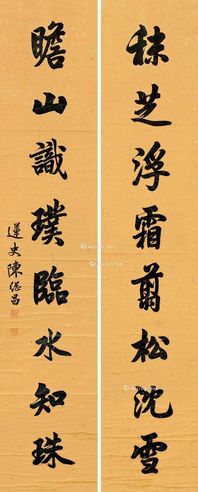 秣芝浮霜翦松沈雪
瞻山識璞臨水知珠
蓮史陳繼昌